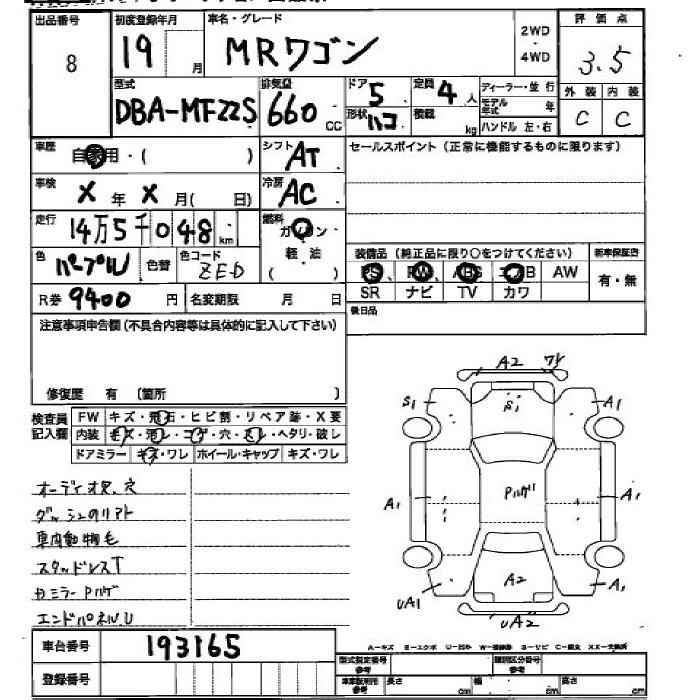 出品番号 初度登録年月 車名・グレード 2WD・4WD 評価点
8 19 月 MRワゴン 3.5
型式 排気量 ドア 定員 ディーラー・並行 外装 内装
DBA-MF22S 660 cc 5 4人 モデル年式 年 C C
形状 ハコ 積載 kg ハンドル 左・右
車歴 自家用・( ) シフト AT セールスポイント(正常に機能するものに限ります)
車検 X年X月( 日) 冷房 AC
走行 14万5千048km 燃料 ガソリン
軽油
( )
色 パープル 色替 色コード ZED
装備品(純正品に限り○をつけてください) 新車保証書
PS PW ABS エアB AW 有・無
SR ナビ TV カワ
R券 9400円 名変期限 月 日
後日品
注意事項申告欄(不具合内容等は具体的に記入して下さい)
修復歴 有(箇所 )
検査員記入欄
FW キズ・飛石・ヒビ割・リペア跡・X要
内装 キズ・汚レ・コゲ・穴・スレ・ヘタリ・破レ
ドアミラー キズ・ワレ ホイール・キャップ キズ・ワレ
オーディオ欠、穴
車内動物毛
スタッドレスT
エンドパネルU
A2 ワレ
S1 S1 A1
A1 A1
A2
UA1 A1
UA2
車台番号 193165
A-キズ E-エクボ U-凹み
登録番号
型式指定番号 類別区分番号
長さ cm 幅 cm 高さ cm